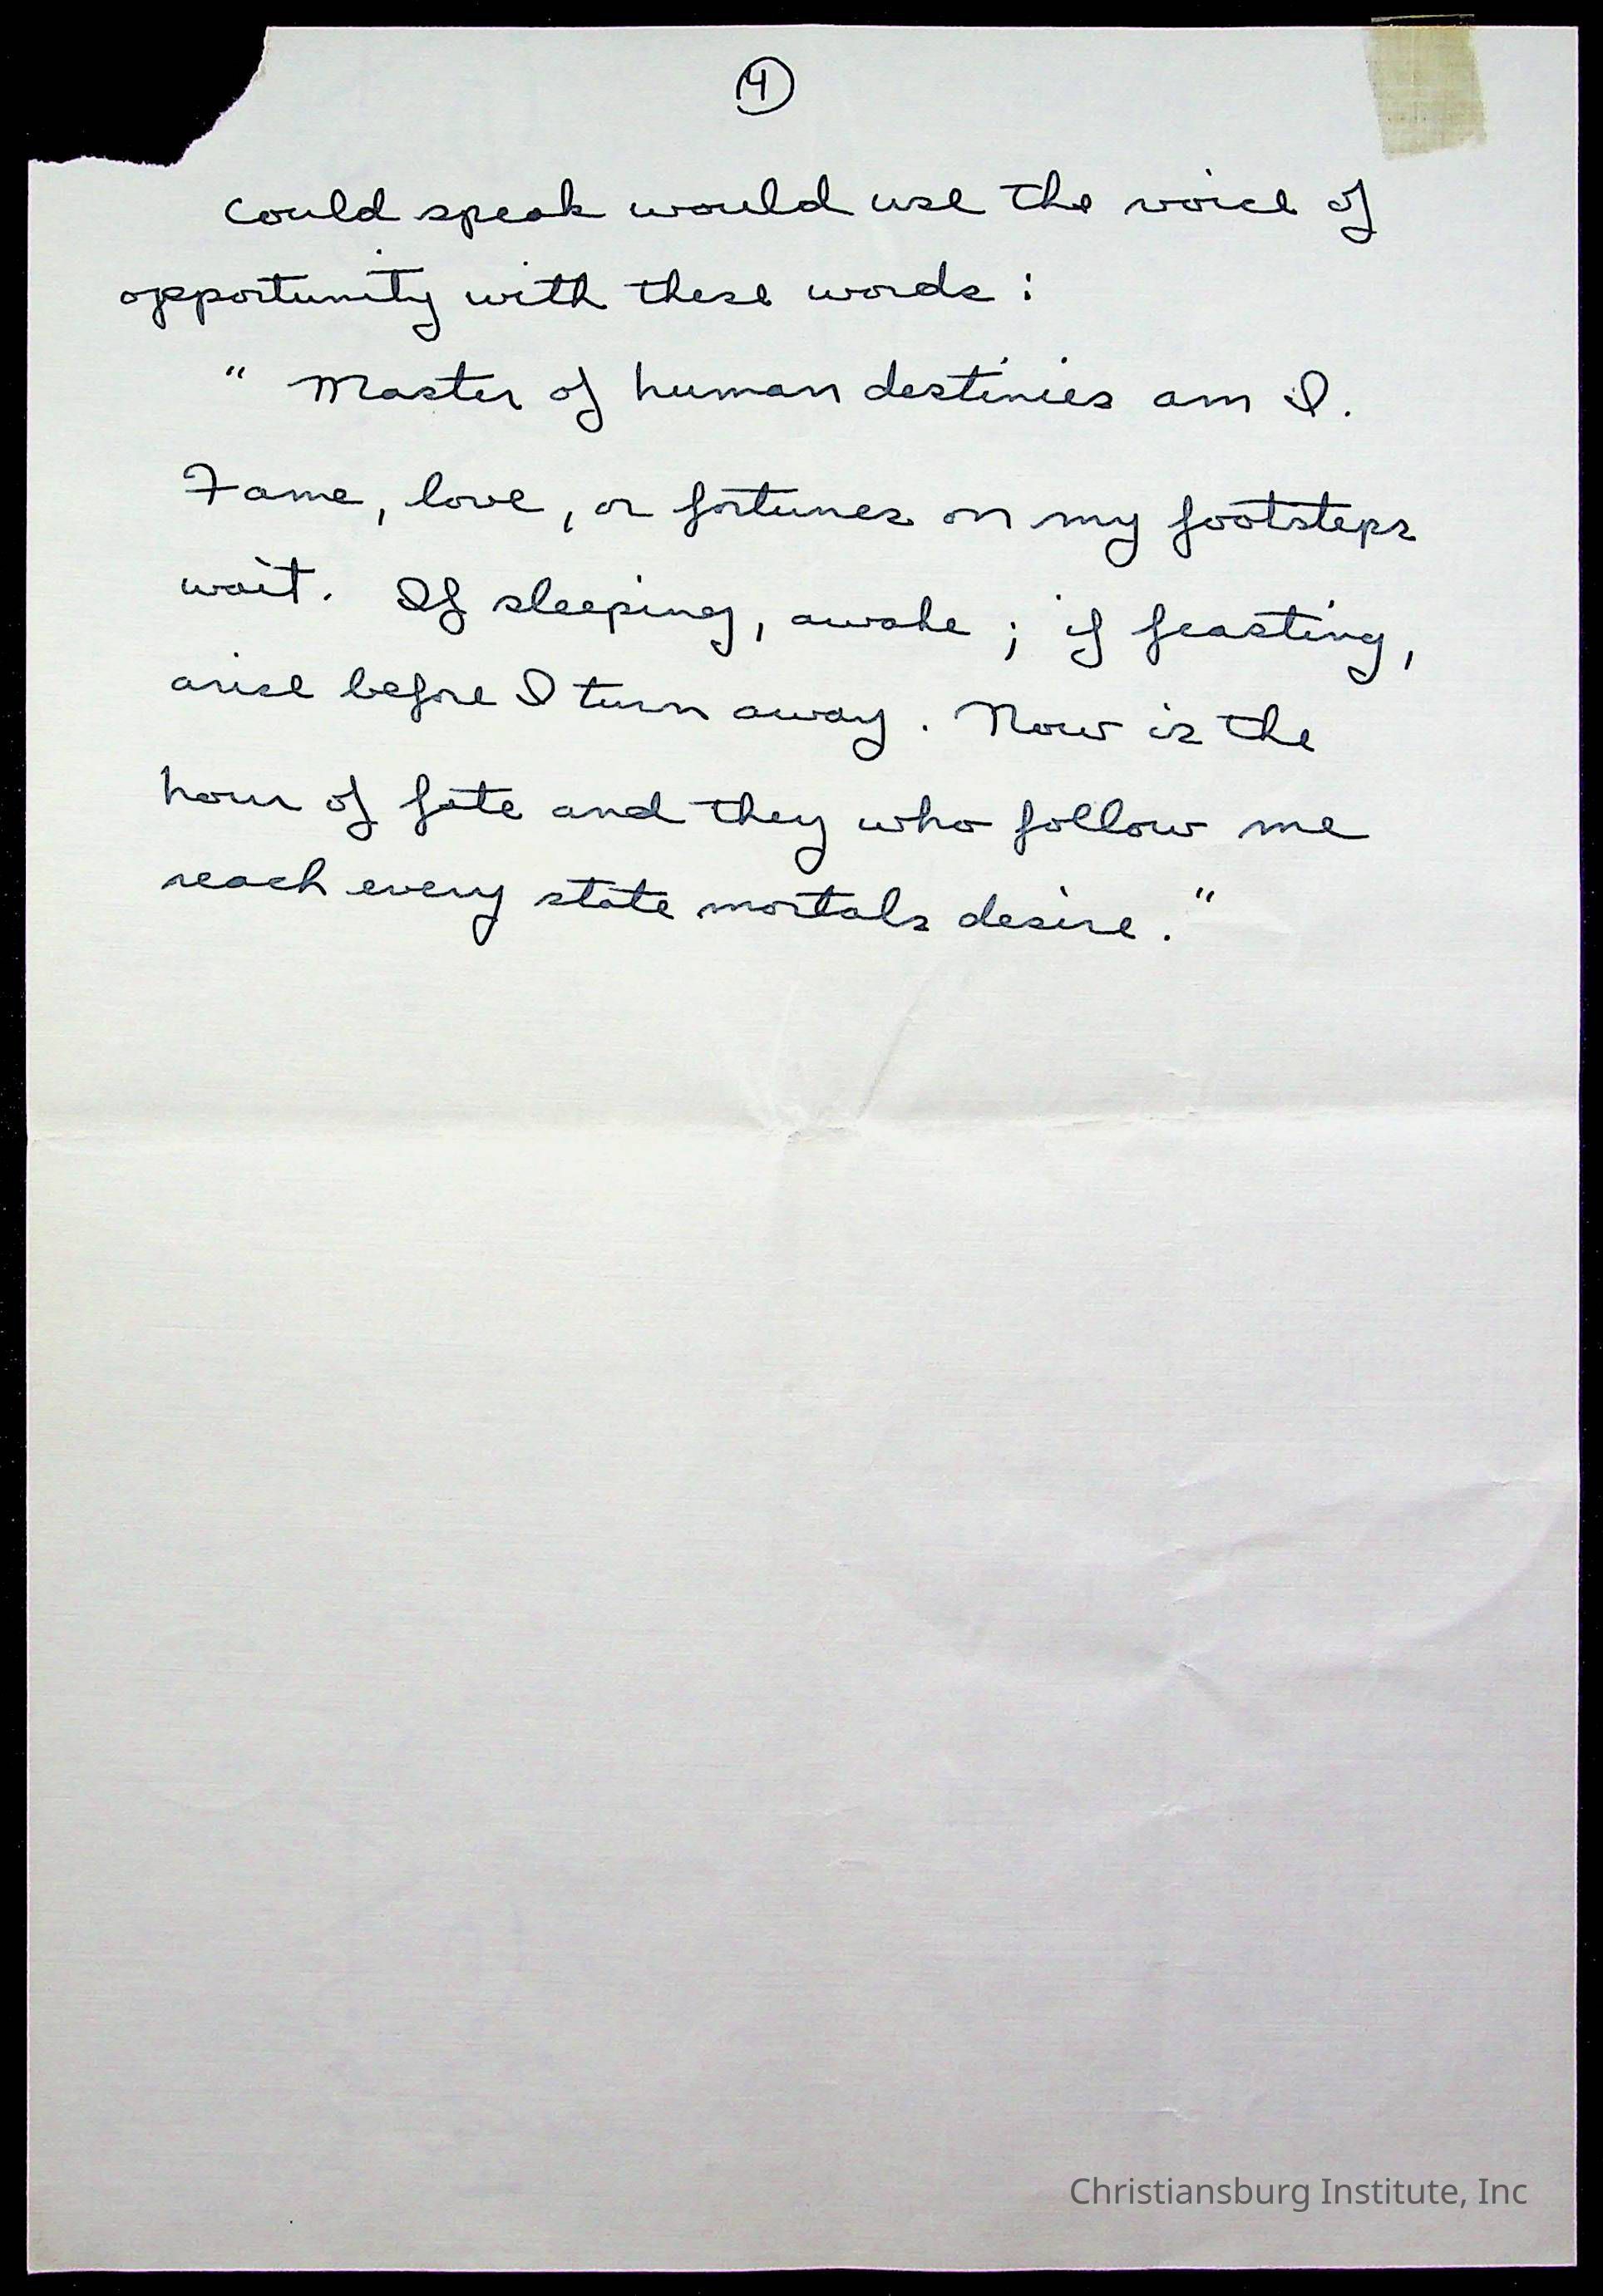 4
could speak would use the voice of
opportunity with these words:
"Master of human destinies am I.
Fame, love, or fortunes on my footsteps
wait. If sleeping, awake; if feasting,
arise before I turn away. Now is the
hour of fate and they who follow me
reach every state mortals desire."
Christiansburg Institute, Inc